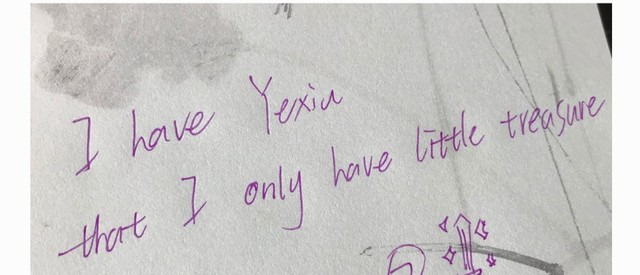 I have Yexiu
that I only have little treasure